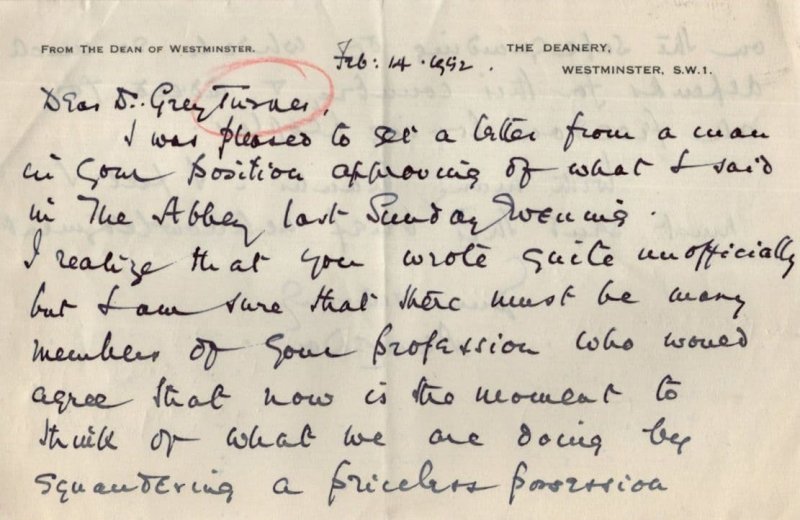 FROM THE DEAN OF WESTMINSTER.
THE DEANERY,
Feb: 14. 1952.
WESTMINSTER, S.W.1.
Dear Dr. Grey Turner,
I was pleased to get a letter from a man
in your position approving of what I said
in The Abbey last Sunday Evening.
I realize that you wrote quite unofficially
but I am sure that there must be many
members of your profession who would
agree that now is the moment to
think of what we are doing by
squandering a priceless possession